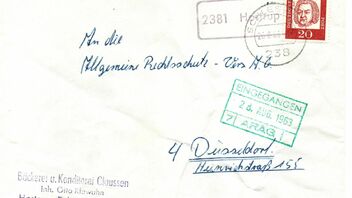 2381 H
238
20
An die
Allgemeine Rechtsschutz - Vers A.G.
EINGEGANGEN
26. AUG. 1963
ARAG
4 Düsseldorf
Heinrichstraße 155
Bäckerei u. Konditorei Claussen
Inh. Otto